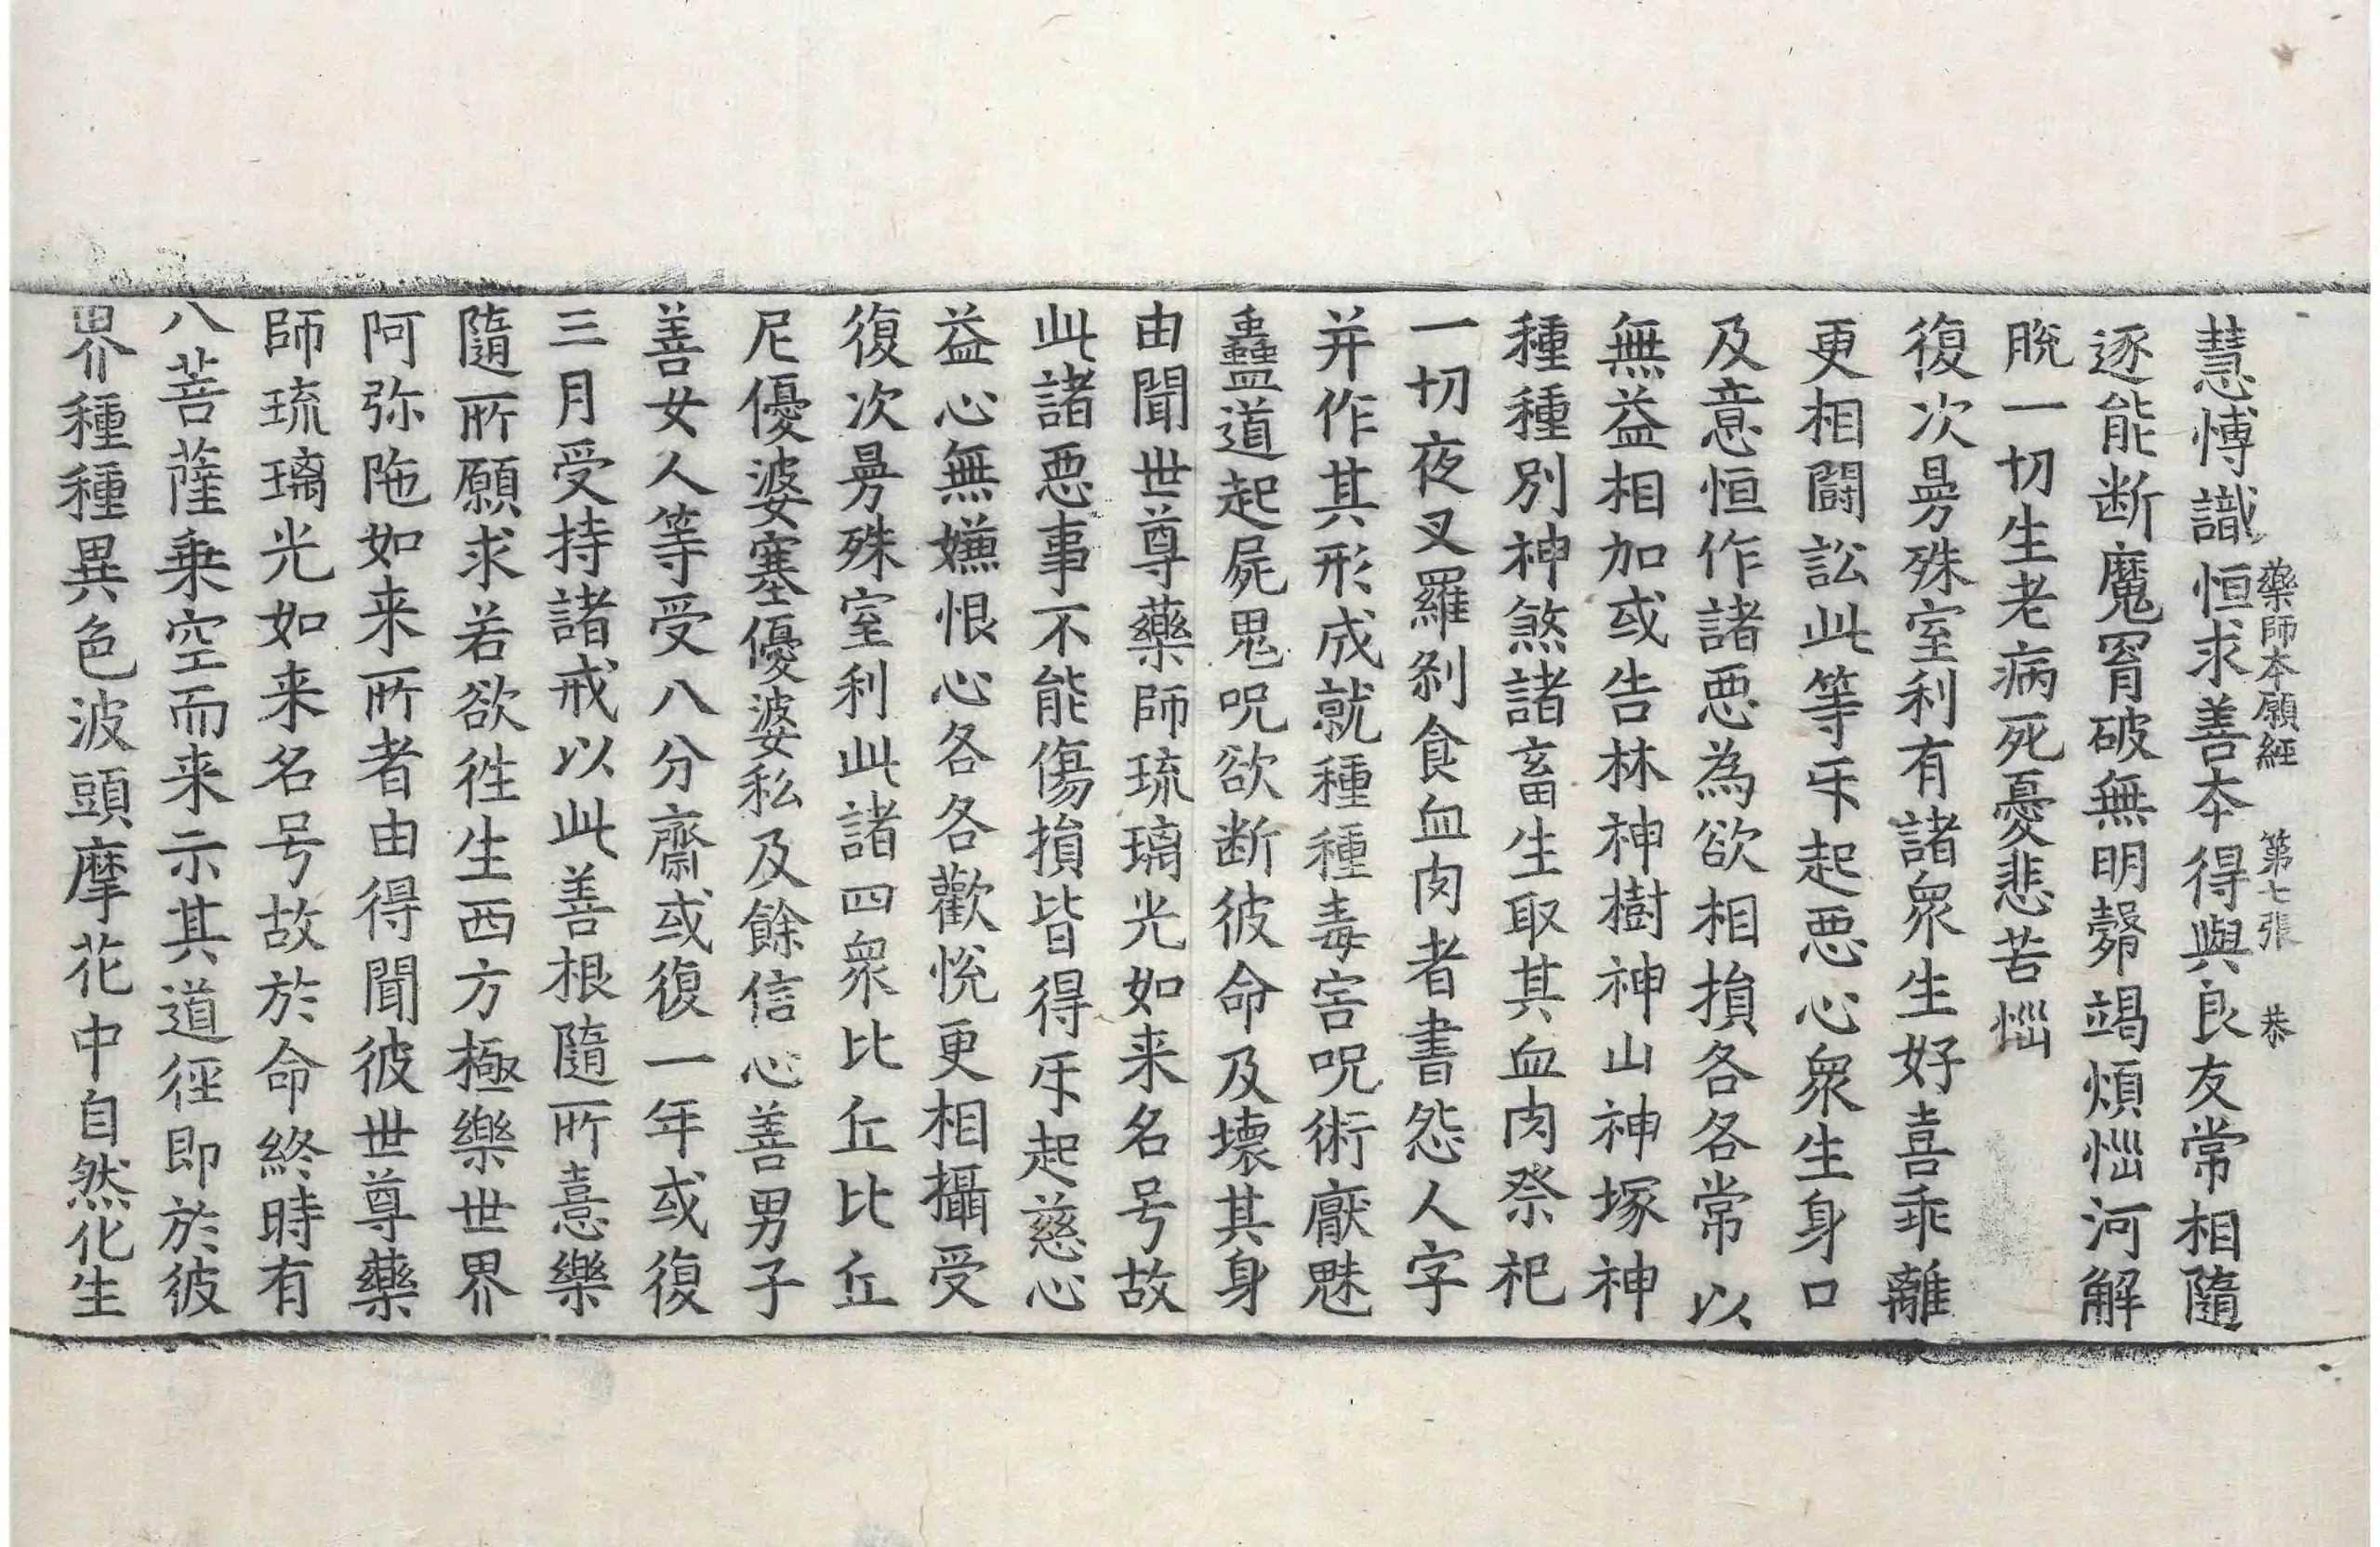 藥師本願經　第七張　恭
慧愽識恒求善夲得與良友常相隨
逐能断魔罥破無明㲉竭煩惱河解
脫一切生老病死憂悲苦惱
復次曼殊室利有諸衆生好喜乖離
更相鬪訟此等㸦起惡心衆生身口
及意恒作諸惡為欲相損各各常以
無益相加或告林神樹神山神塚神
種種別神煞諸畜生取其血肉祭祀
一切夜叉羅剎食血肉者書怨人字
并作其形成就種種毒害呪術厭魅
蠱道起屍鬼呪欲断彼命及壞其身
由聞世尊藥師琉璃光如来名号故
此諸惡事不能傷損皆得㸦起慈心
益心無嫌恨心各各歡悅更相攝受
復次曼殊室利此諸四衆比丘比丘
尼優婆塞優婆私及餘信心善男子
善女人等受八分齋或復一年或復
三月受持諸戒以此善根隨所憙樂
隨所願求若欲徃生西方極樂世界
阿弥陁如来所者由得聞彼世尊藥
師琉璃光如来名号故於命終時有
八菩薩乗空而来示其道徑即於彼
界種種異色波頭摩花中自然化生